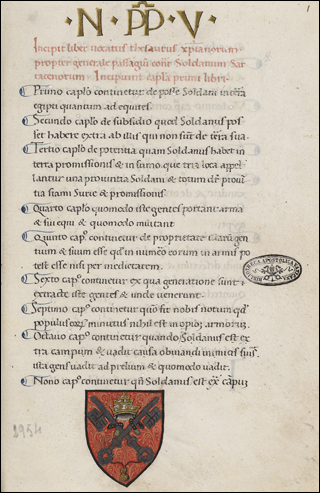 · N · PP · V ·
Incipit liber uocatus thesaurus xpianorum
propter generale passagiu contr Soldanum Sar
racenorum. Incipiunt capla primi libri.
Primo caplo continetur de posse Soldani in terra
egipti quantum ad equites.
Secundo caplo de subsidio quod Soldanus pos
set habere extra ab illis qui non sunt de terra sua.
Tertio caplo de potentia quam Soldanus habet in
terra promissionis & in sumo. que tria loca appel
lantur una prouintia Soldani & totum de proui
tia siami Surie & promissionis
Quarto caplo quomodo iste gentes portant arma
& sui equi & quomodo militant
Quinto cap. continetur de proprietate illarum gen
tium & suium esse qd in numero eorum in armis po
test esse nisi per medietatem.
Sexto cap. continetur ex qua generatione sunt
extracte iste gentes & unde uenerunt.
Septimo cap. continetur quo sic nobis notum qd
populus eorum minutus nihil est in opibus armorum.
Octauo cap. continetur quando Soldanus est ex
tra campum & uadit causa obuiandi inimicis suis.
ista gens uadit ad prelium & quomodo uadit.
Nono cap. continetur qn Soldanus est ex campum
1954